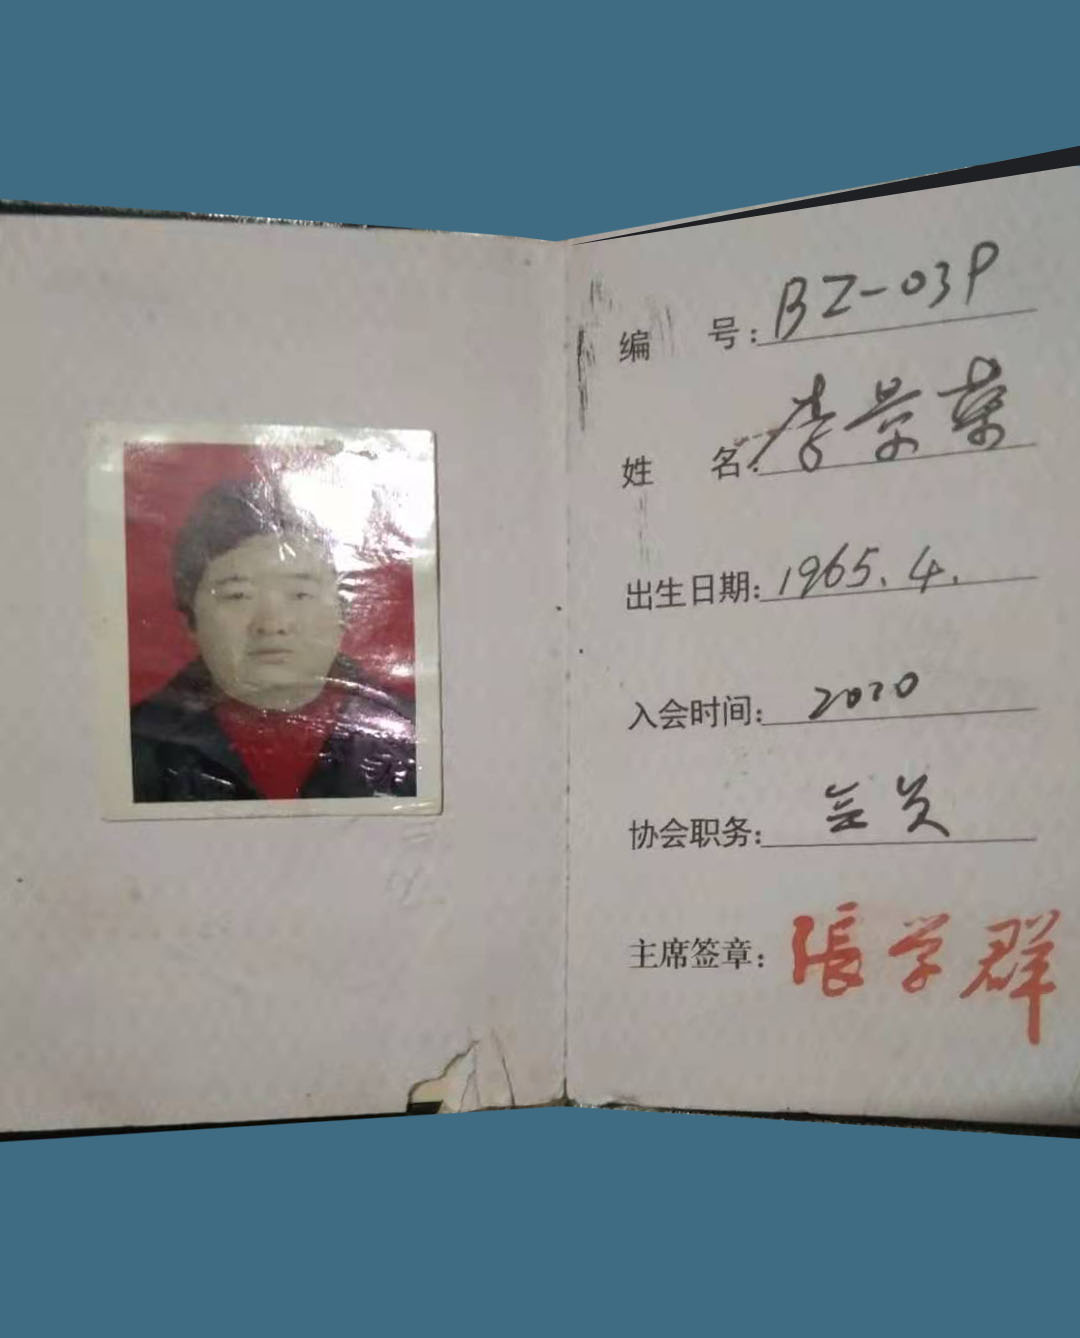 编 号: BZ-03P
姓 名: 李景荣
出生日期: 1965.4.
入会时间: 2010
协会职务: 会员
主席签章: 張学群